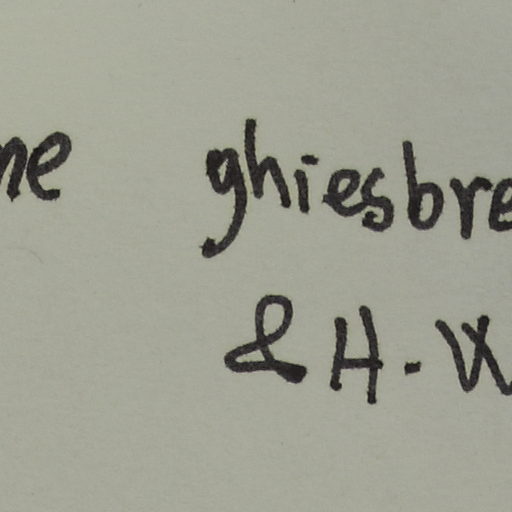 ne ghiesbre
& H. W